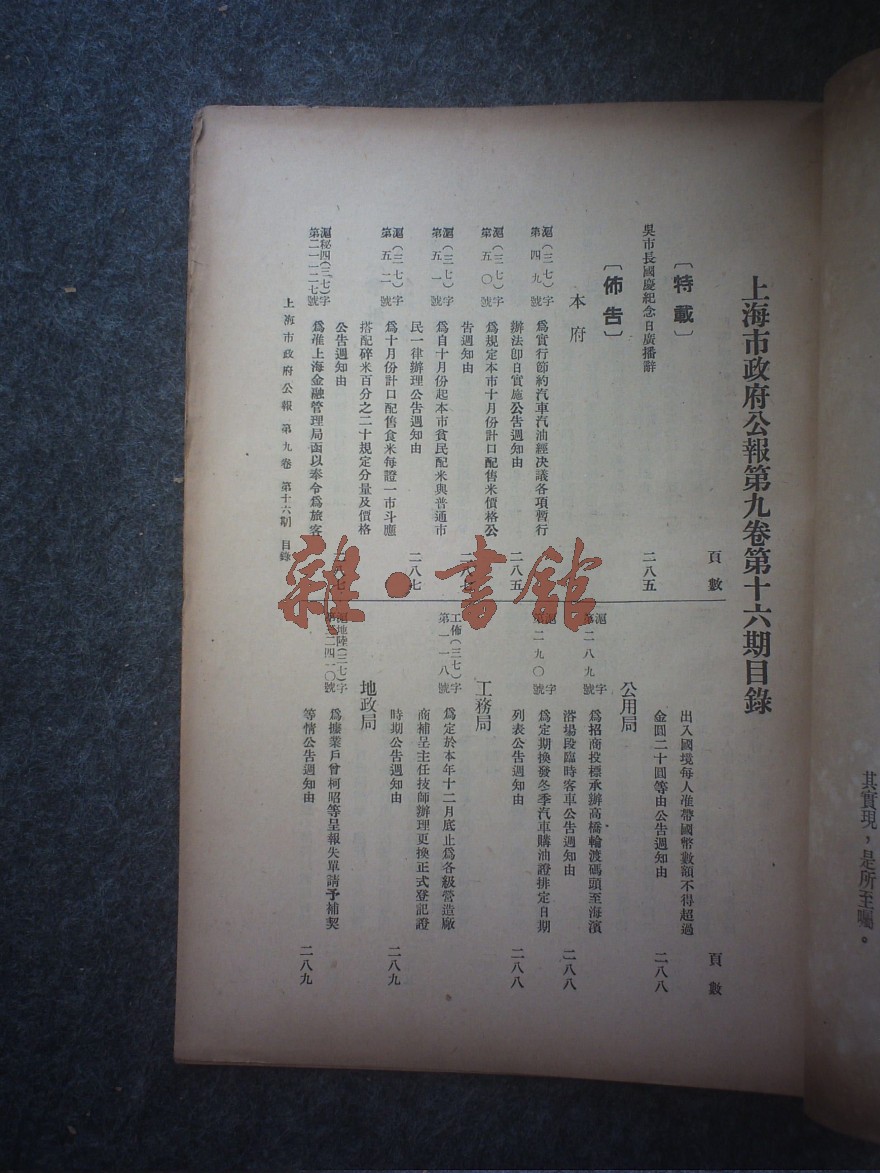 上海市政府公報第九卷第十六期目錄
頁數
〔特載〕
吳市長國慶紀念日廣播辭
二八五
〔佈告〕
本府
滬(三七)字
第四九號
為實行節約汽車汽油經決議各項暫行
辦法卽日實施公告週知由
二八五
滬(三七)字
第五〇號
為規定本市十月份計口配售米價格公
告週知由
滬(三七)字
第五一號
為自十月份起本市貧民配米與普通市
民一律辦理公告週知由
二八七
滬(三七)字
第五二號
為十月份計口配售食米每證一市斗應
搭配碎米百分之二十規定分量及價格
公告週知由
二八七
滬秘四(三七)字
第二一一二七號
為准上海金融管理局函以奉令為旅客
頁數
出入國境每人准帶國幣數額不得超過
金圓二十圓等由公告週知由
二八八
公用局
滬字
第二八九號
為招商投標承辦高橋輪渡碼頭至海濱
浴場段臨時客車公告週知由
二八八
滬字
第二九〇號
為定期換發冬季汽車購油證排定日期
列表公告週知由
二八八
工務局
工佈(三七)字
第一一八號
為定於本年十二月底止為各級營造廠
商補呈主任技師辦理更換正式登記證
時期公告週知由
二八九
地政局
滬地陸(三七)字
為據業戶曾柯昭等呈報失單請予補契
等情公告週知由
二八九
上海市政府公報 第九卷 第十六期 目錄
其實現，是所至囑。
雜·書館